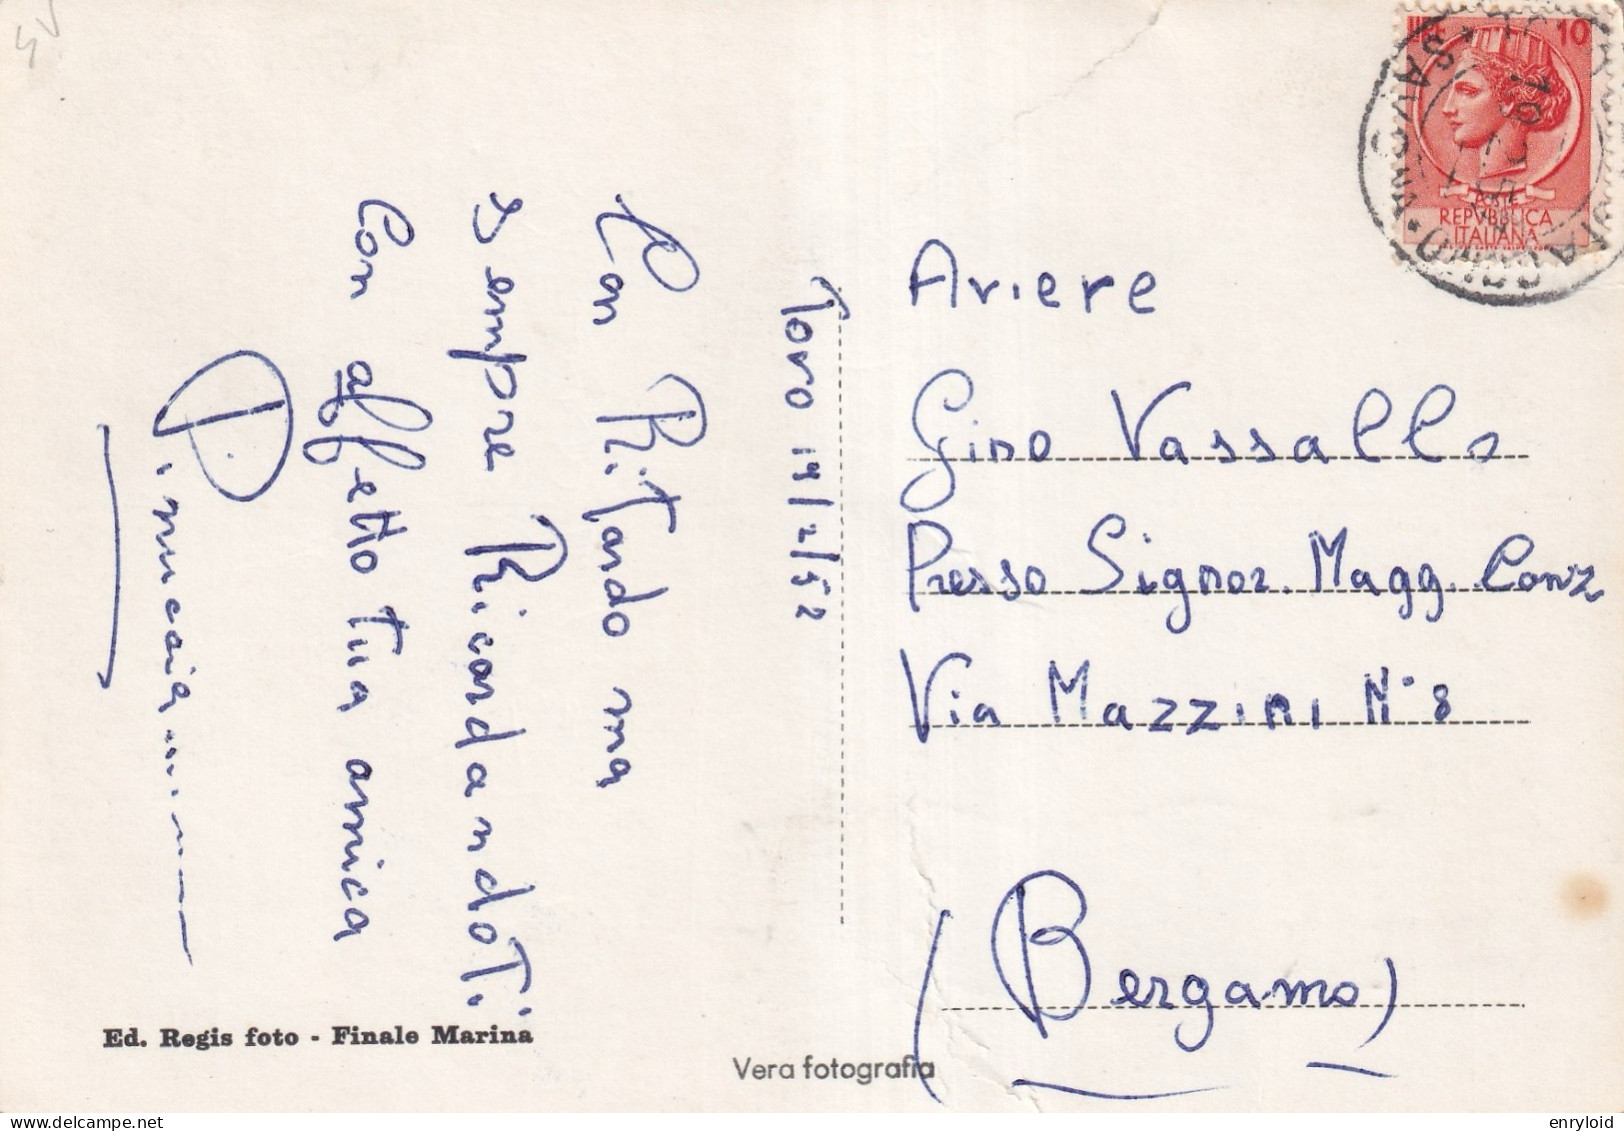 Tovo 19/2/52
Con Ritardo ma
sempre Ricordandoti
Con affetto tua amica
Pinuccia
Ed. Regis foto - Finale Marina
Vera fotografia
LIRE 10
POSTE
REPVBBLICA
ITALIANA
SAVONA
Aviere
Gino Vassallo
Presso Signor. Magg. Conz
Via Mazzini N° 8
(Bergamo)
enryloid